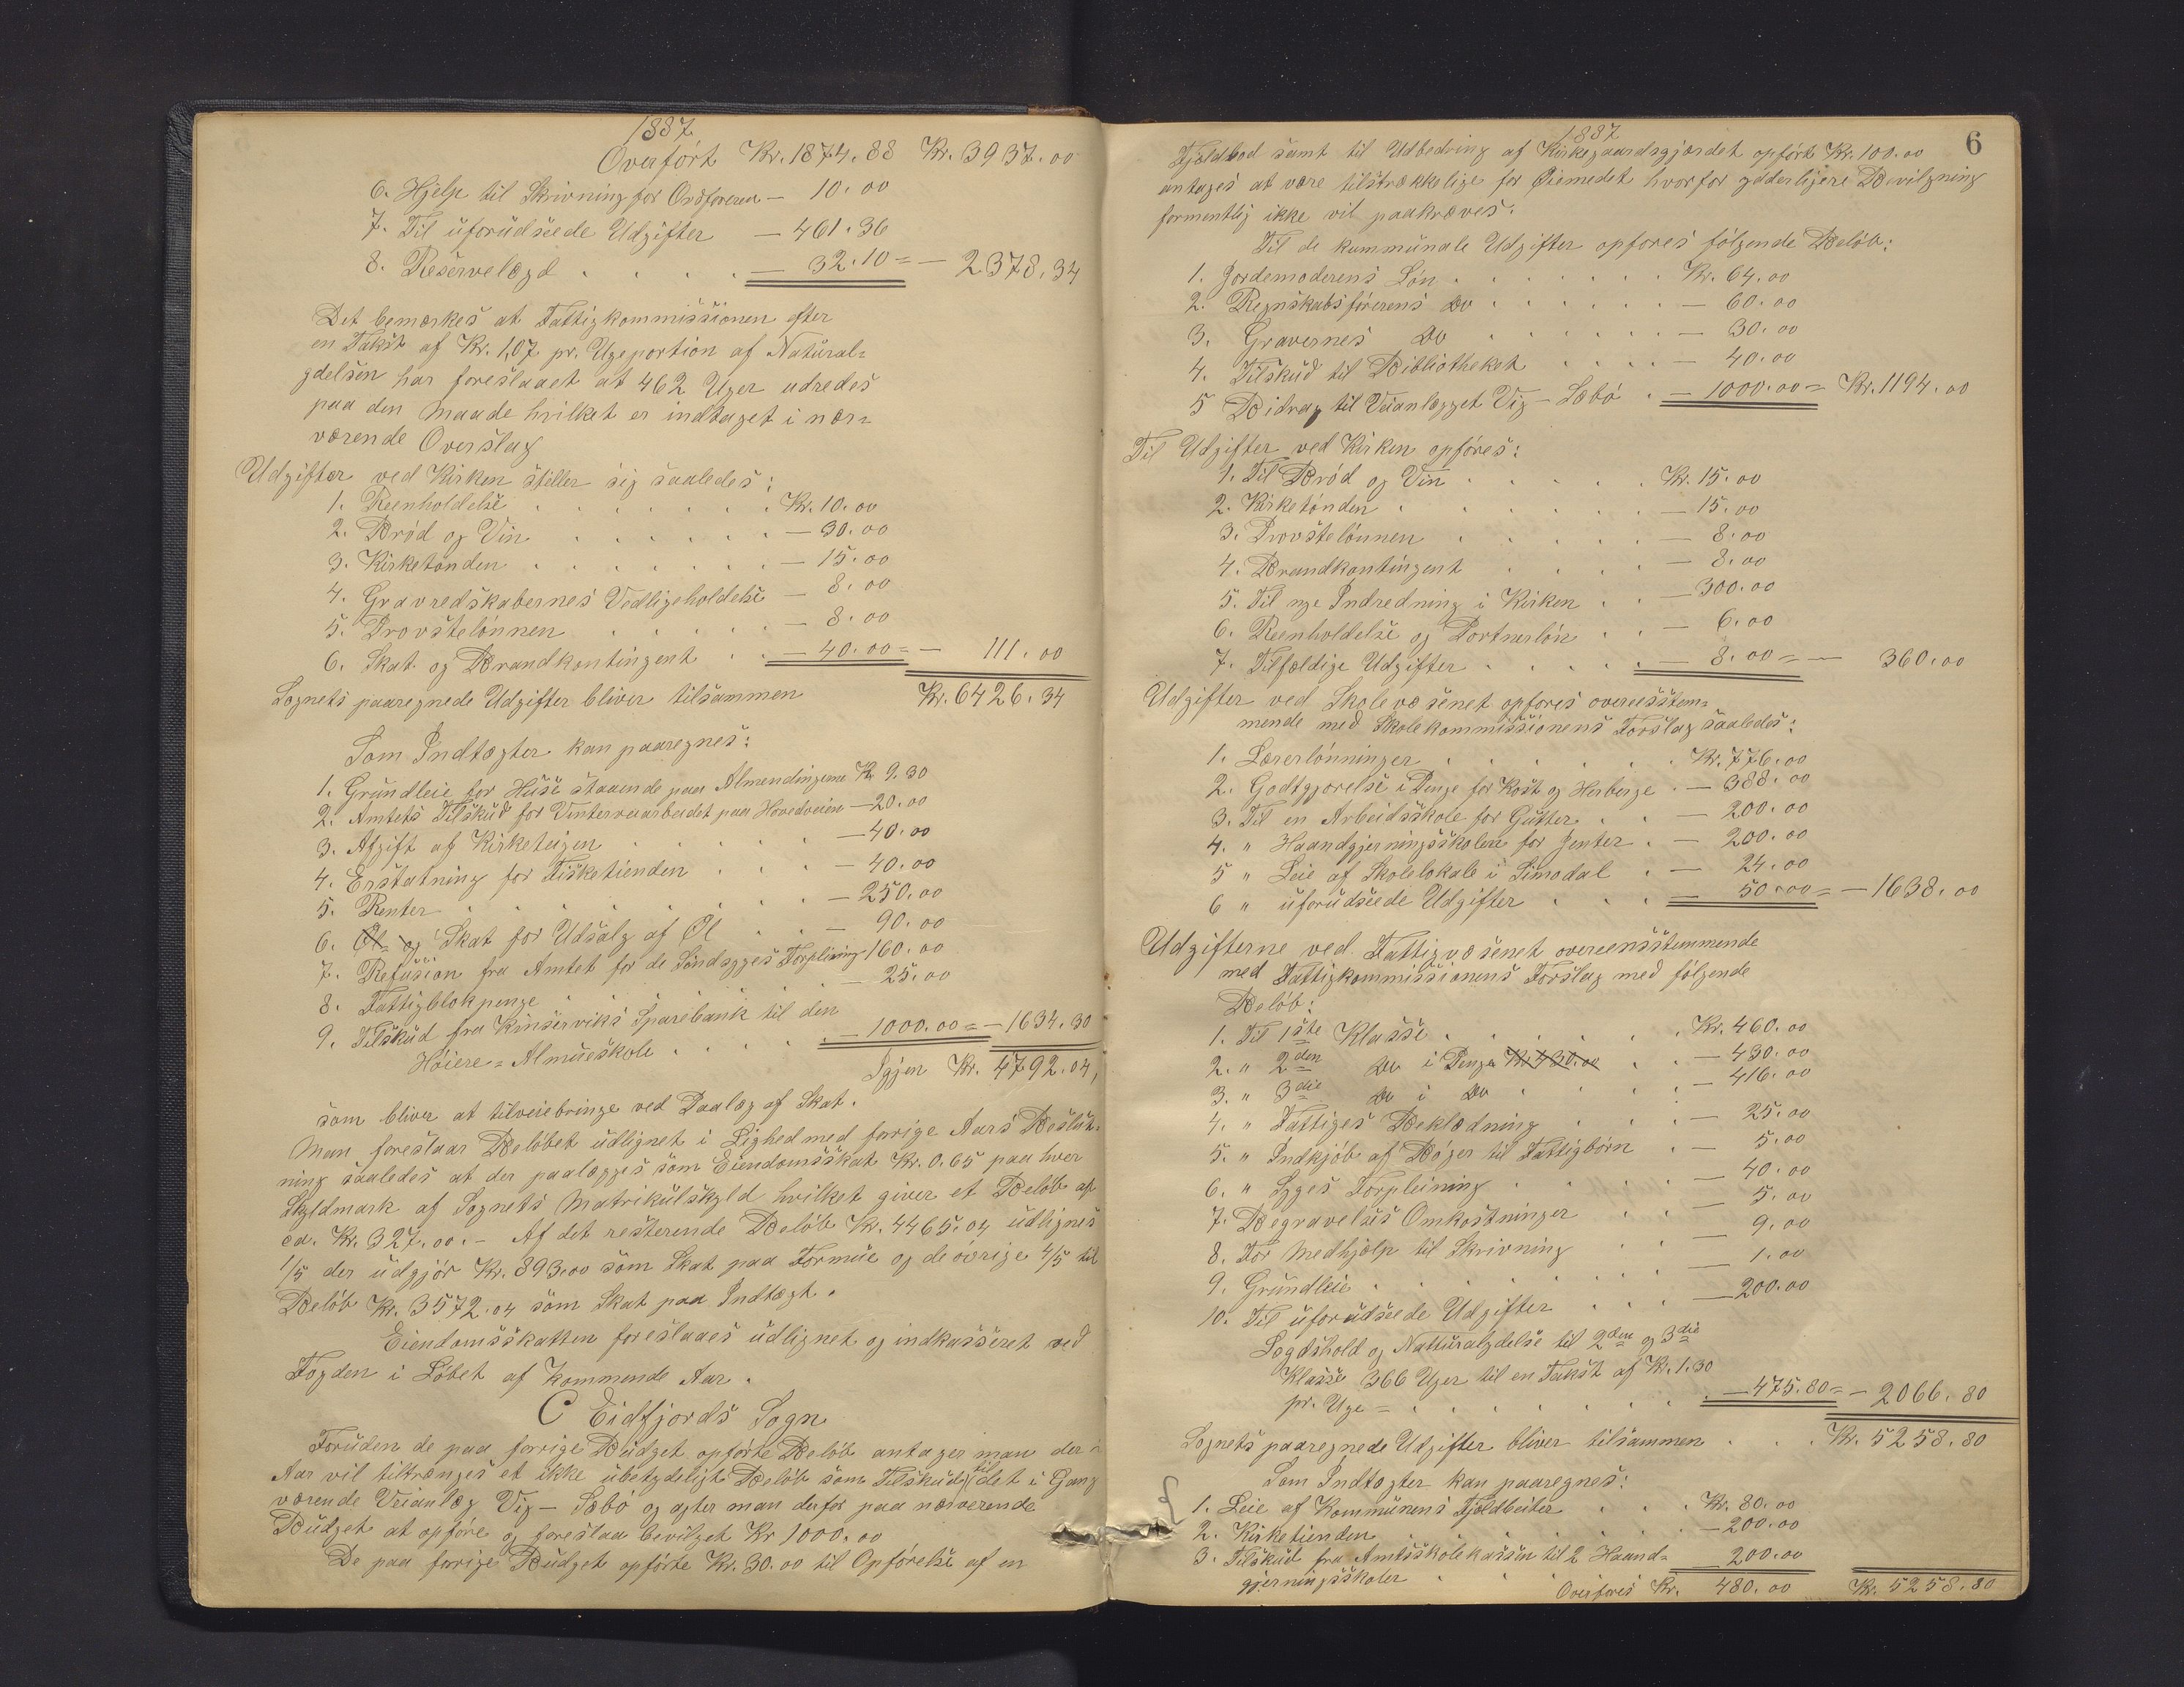 1887
Overført Kr. 1874.88 Kr. 3937.00
6. Hjelp til Skrivning for Ordføreren — 10.00
7. Til uforudseede Udgifter — 461.36
8. Reservelægd . . . . — 32.10 = — 2378.34
Det bemærkes at Fattigkommissionen efter
en Takst af Kr. 1,07 pr. Ugeportion af Natural=
ydelsen har foreslaaet at 462 Uger udredes
paa den Maade hvilket er indtaget i nær=
værende Overslag
Udgifter ved Kirken stiller sig saaledes:
1. Reenholdelse . . . . . . . Kr. 10.00
2. Brød og Vin . . . . . . — 30.00
3. Kirketønden . . . . . . . — 15.00
4. Gravredskabernes Vedligeholdelse — 8.00
5. Provstelønnen . . . . . — 8.00
6. Skat og Brandkontingent . . — 40.00 = — 111.00
Sognets paaregnede Udgifter bliver tilsammen Kr. 6426.34
Som Indtægter kan paaregnes:
1. Grundleie for Huse staaende paa Almendingerne Kr 9.30
2. Amtets Tilskud for Vinterveiarbeidet paa Hovedveien — 20.00
3. Afgift af Kirketeigen . . . . . — 40.00
4. Erstatning for Fisketienden . . . — 40.00
5. Renter . . . . . . . . — 250.00
6. Øl- og Skat for Udsalg af Øl . . — 90.00
7. Refusion fra Amtet for de Sindsyges Forpleining 160.00
8. Fattigblokpenge . . . . . . — 25.00
9. Tilskud fra Kinserviks Sparebank til den
Høiere = Almueskole . . . . . — 1000.00 = — 1634.30
Igjen Kr. 4792.04,
som bliver at tilveiebringe ved Paalæg af Skat.
Man foreslaar Beløbet udlignet i Lighed med forrige Aars Beslut=
ning saaledes at der paalægges som Eiendomsskat Kr. 0.65 paa hver
Skyldmark af Sognets Matrikulskyld hvilket giver et Beløb af
ca. Kr. 327.00. — Af det resterende Beløb Kr. 4465.04 udlignes
1/5 der udgjør Kr. 893.00 som Skat paa Formue og de øvrige 4/5 til
Beløb Kr. 3572.04 som Skat paa Indtægt.
Eiendomsskatten foreslaaes udlignet og indkasseret ved
Fogden i Løbet af kommende Aar.
C Eidfjords Sogn
Foruden de paa forrige Budget opførte Beløb antager man der i
Aar vil tiltrænges et ikke ubetydeligt Beløb som Tilskud til det i Gang
værende Veianlæg Vig — Sæbø og agter man derfor paa nærværende
Budget at opføre og foreslaa bevilget Kr 1000.00
De paa forrige Budget opførte Kr. 30.00 til Opførelse af en
1887
6
Fjeldbod samt til Udbedring af Kirkegaardsgjærdet opført Kr. 100.00
antages at være tilstrækkelige for Øiemedet hvorfor yderligere Bevilgning
formentlig ikke vil paakræves.
Til de kommunale Udgifter opføres følgende Beløb:
1. Jordemoderens Løn . . . . . . . Kr. 64.00
2. Regnskabsførerens Do . . . . . . — 60.00
3. Gravernes Do . . . . . . — 30.00
4. Tilskud til Bibliotheket . . . . — 40.00
5 Bidrag til Veianlægget Vig — Sæbø . — 1000.00 = Kr. 1194.00
Til Udgifter ved Kirken opføres:
1. Til Brød og Vin . . . . . . Kr. 15.00
2. Kirketønden . . . . . . — 15.00
3. Provstelønnen . . . . . — 8.00
4. Brandkontingent . . . . — 8.00
5. Til nye Indredning i Kirken . . — 300.00
6. Reenholdelse og Portnerløn . . — 6.00
7. Tilfældige Udgifter . . . . . — 8.00 = — 360.00
Udgifter ved Skolevæsenet opføres overeesstem=
mende med Skolekommissionens Forslag saaledes:
1. Lærerlønninger . . . . . . . Kr. 776.00
2. Godtgjørelse i Penge for Kost og Herberge . — 388.00
3. Til en Arbeidsskole for Gutter . . — 200.00
4. " Haandgjerningsskolen for Jenter . — 200.00
5 " Leie af Skolelokale i Simodal . — 24.00
6 " uforudseede Udgifter . . . — 50.00 = — 1638.00
Udgifterne ved Fattigvæsenet overeensstemmende
med Fattigkommissionens Forslag med følgende
Beløb:
1. Til 1ste Klasse . . . . . . Kr. 460.00
2. " 2den Do i Penge Kr. 430.00 . . — 430.00
3. " 3die Do i Do . . . . — 416.00
4. " Fattiges Beklædning . . . — 25.00
5. " Indkjøb af Bøger til Fattigbørn . — 5.00
6. " Syges Forpleining . . . . — 40.00
7. Begravelses Omkostninger . . — 5.00
8. For Medhjælp til Skrivning . . — 9.00
9. Grundleie . . . . . . . — 1.00
10. Til uforudseede Udgifter . . . — 200.00
Lægdshold og Natturalydelse til 2den og 3die
Klasse 366 Uger til en Takst af Kr. 1.30
pr. Uge = . . . . . . . — 475.80 = — 2066.80
Sognets paaregnede Udgifter bliver tilsammen . . . Kr. 5258.80
Som Indtægter kan paaregnes:
1. Leie af Kommunens Fjeldbeiter . . . Kr. 80.00
2. Kirketienden . . . . . . . — 200.00
3. Tilskud fra Amtsskolekassen til 2 Haand= — 200.00
gjerningsskoler . . . Overføres Kr. 480.00 Kr. 5258.80